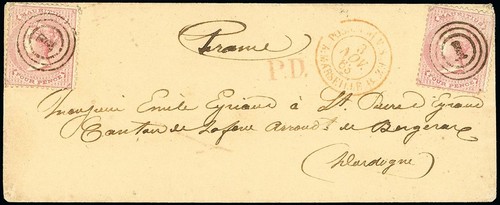 MAURITIUS
FOUR PENCE
France
P.D.
MAURITIUS
FOUR PENCE
Monsieur Emile Eyriaud à St. Pierre d'Eyraud
Canton de Laforce Arrondt de Bergerac
(Dordogne)